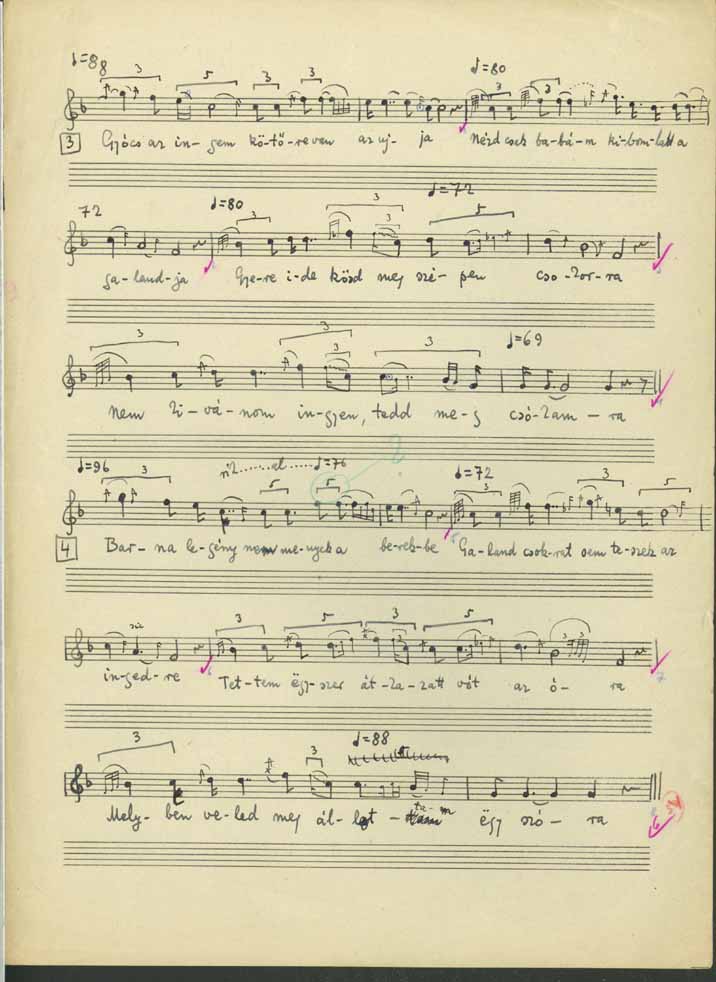 ♩=88 3 5 3 3 ♩=80 3 3
3 Gyócs az in- gem kö-tő-re ven az uj- ja Nézd csak ba-bá-m ki-bom-lott a
72 ♩=80 3 3 3 ♩=72 5
ga-land-ja Gye-re i-de kösd meg szé-pen cso-kor-ra
3 3 3 3 ♩=69
nem ki-vá-nom in-gyen, tedd me-g csó-kam-ra
♩=96 3 5 5 ♩=76 ♩=72 3 5 3 5
4 Bar-na le-gény nem me-nyek a be-rek-be Ga-land csok-rat sem te-szek az
3 5 3 5 3 3
in-ged-re Tet-tem ëgy-szer át-ka-zatt vót az ó- ra
3 3 ♩=88
Mely-ben ve-led meg ál- ta-m ëgy szó- ra